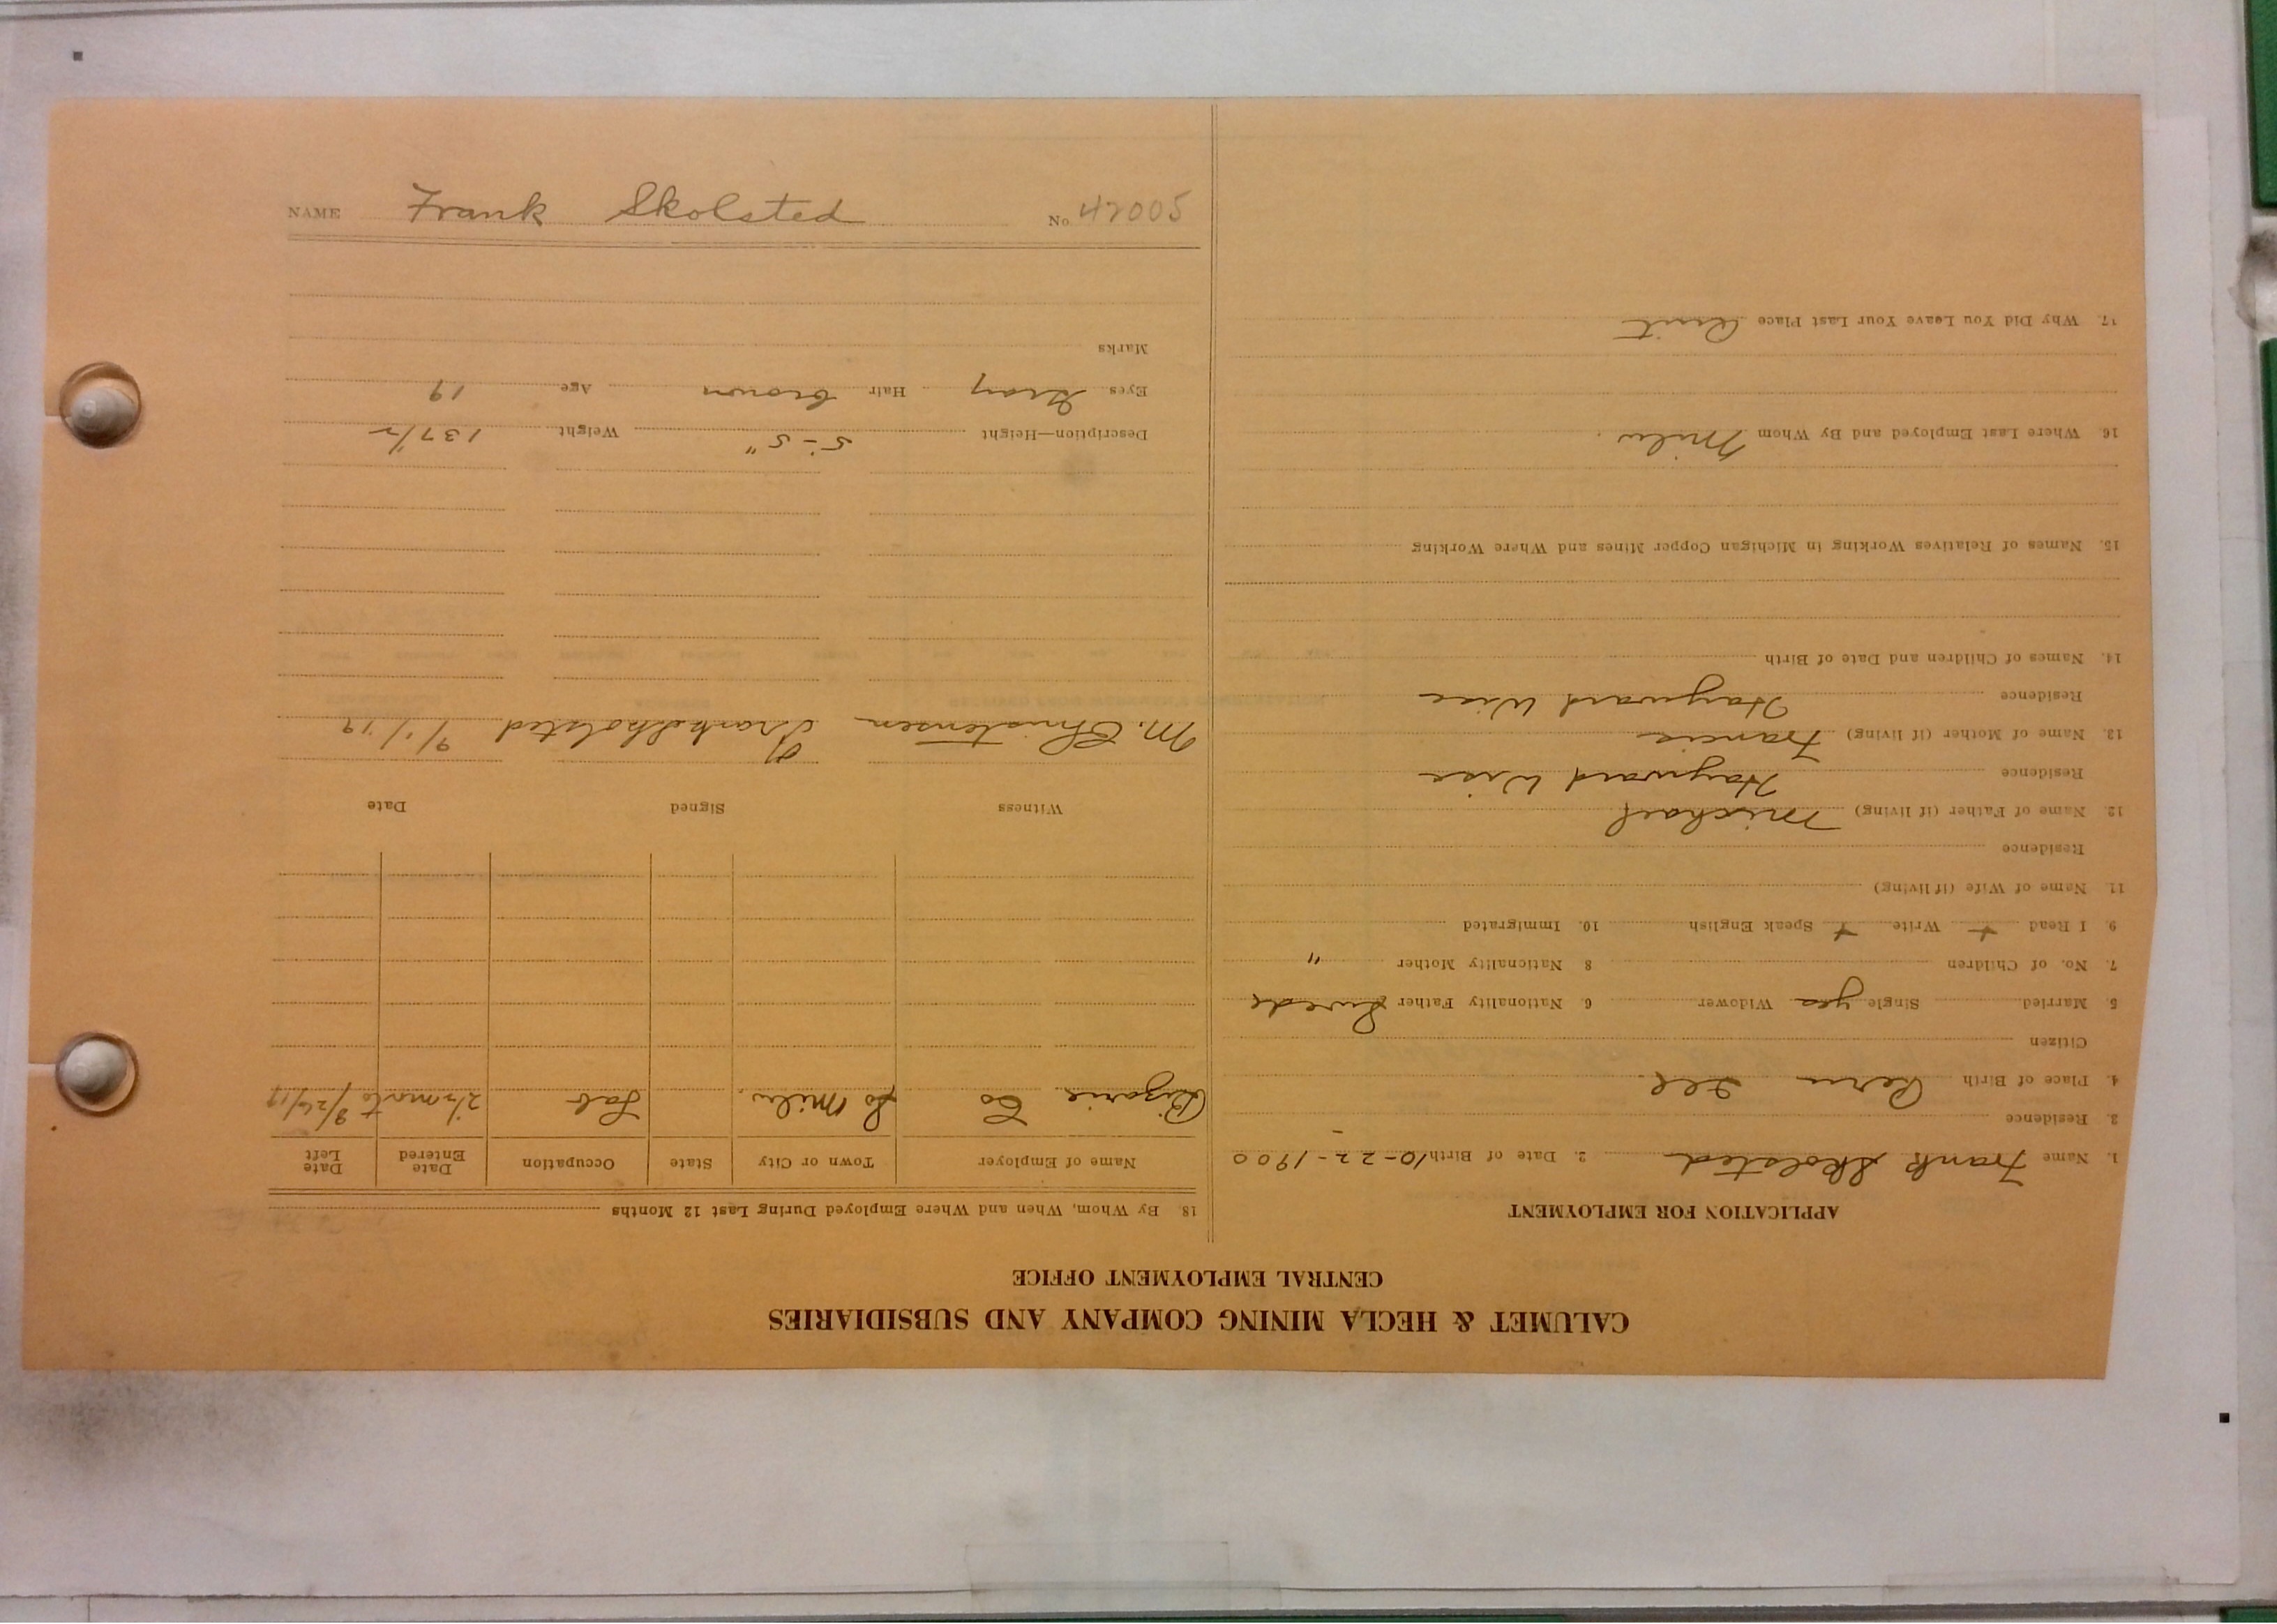 CALUMET & HECLA MINING COMPANY AND SUBSIDIARIES
CENTRAL EMPLOYMENT OFFICE
APPLICATION FOR EMPLOYMENT
1. Name Frank Skolsted 2. Date of Birth 10-22-1900
3. Residence
4. Place of Birth Peru Ill.
Citizen
5 Married Single yes Widower 6. Nationality Father Swede
7. No. of Children 8 Nationality Mother "
9. I Read + Write + Speak English 10. Immigrated
11. Name of Wife (if living)
Residence
12. Name of Father (if living) Michael
Residence Hayward Wisc
13. Name of Mother (if living) Francis
Residence Hayward Wisc
14. Names of Children and Date of Birth
15. Names of Relatives Working in Michigan Copper Mines and Where Working
16. Where Last Employed and By Whom Milw.
17. Why Did You Leave Your Last Place Quit
18. By Whom, When and Where Employed During Last 12 Months
Name of Employer Town or City State Occupation Date Entered Date Left
Co So Milw. Lab 2½ mots 8/26/19
Witness Signed Date
M. Christensen Frank Skolsted 9/1/19
Description—Height 5-5" Weight 137½
Eyes Gray Hair brown Age 19
Marks
NAME Frank Skolsted No 42005